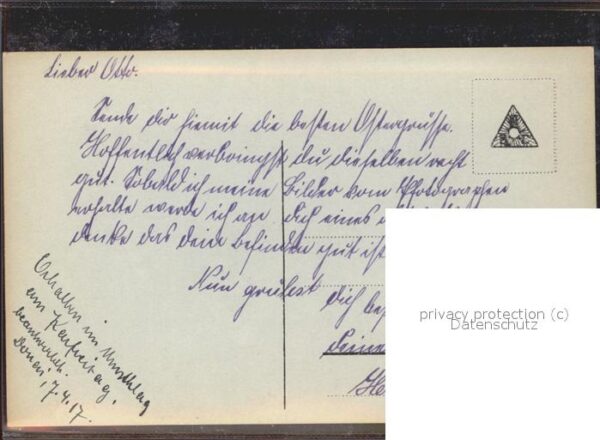 Lieber Otto.
Sende dir hiemit die besten Ostergrüsse.
Hoffentlich verbringst du dieselben recht
gut. Sobald ich meine Bilder vom Photographen
erhalte werde ich an dich eines
denke das dein Befinden gut ist
Nun grüsst dich
Deine
Erhalten im Umschlag
am Karfreitag,
beantwortet.
7.4.17.
privacy protection (c)
Datenschutz